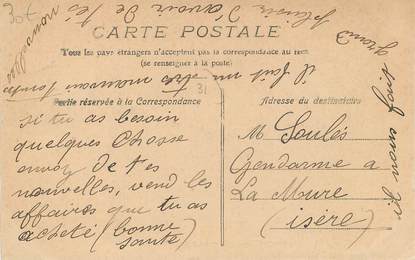 CARTE POSTALE
Tous les pays étrangers n'acceptent pas la correspondance au recto
(se renseigner à la poste)
Partie réservée à la Correspondance
si tu as besoin
quelques chosse
envoy de tes
nouvelles, vend les
affaires que tu as
acheté (bonne
santé)
31
Adresse du destinataire
M Soulés
Gendarme a
La Mure
(isère)
il nous fait
grand
plaisir d'avoir de tes
il fait un très mauvais
307